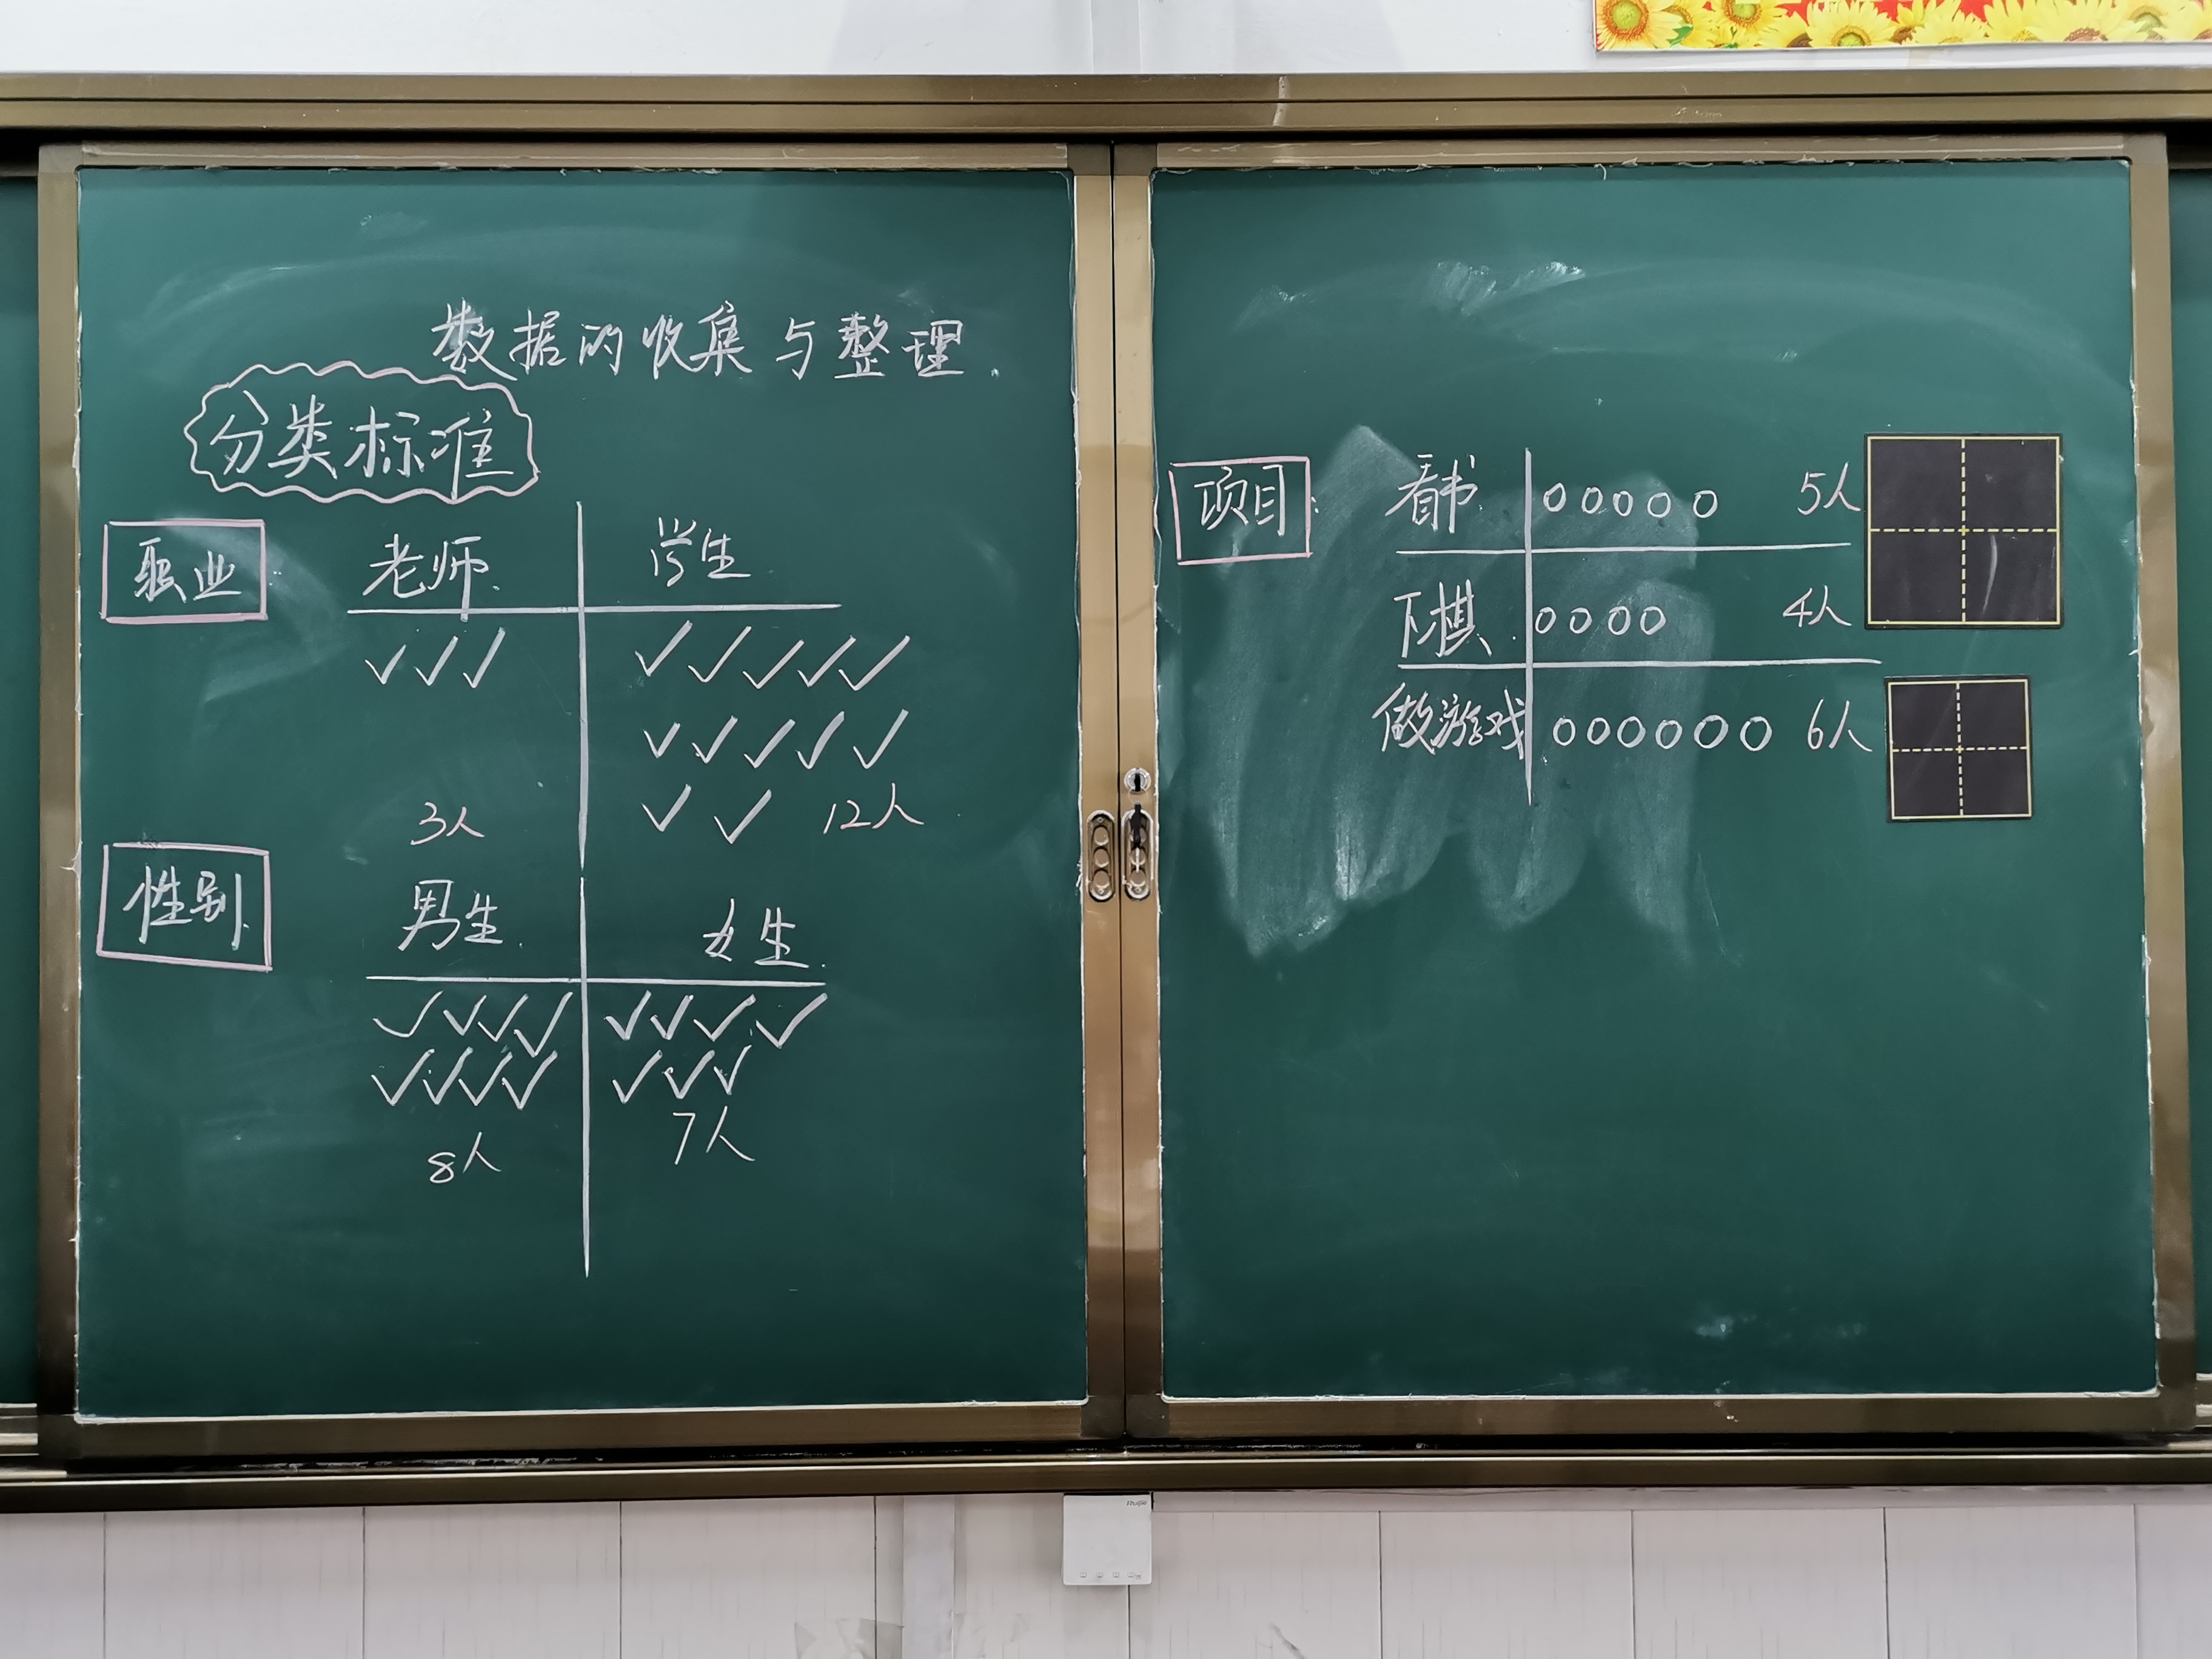 数据的收集与整理.
分类标准
职业: 老师. 学生
✓✓✓ ✓✓✓✓✓
✓✓✓✓✓
3人 ✓✓ 12人
性别 男生. 女生.
✓✓✓✓ ✓✓✓✓
✓✓✓✓ ✓✓✓
8人 7人
项目: 看书 ○○○○○ 5人
下棋 ○○○○ 4人
做游戏 ○○○○○○ 6人
Ruijie